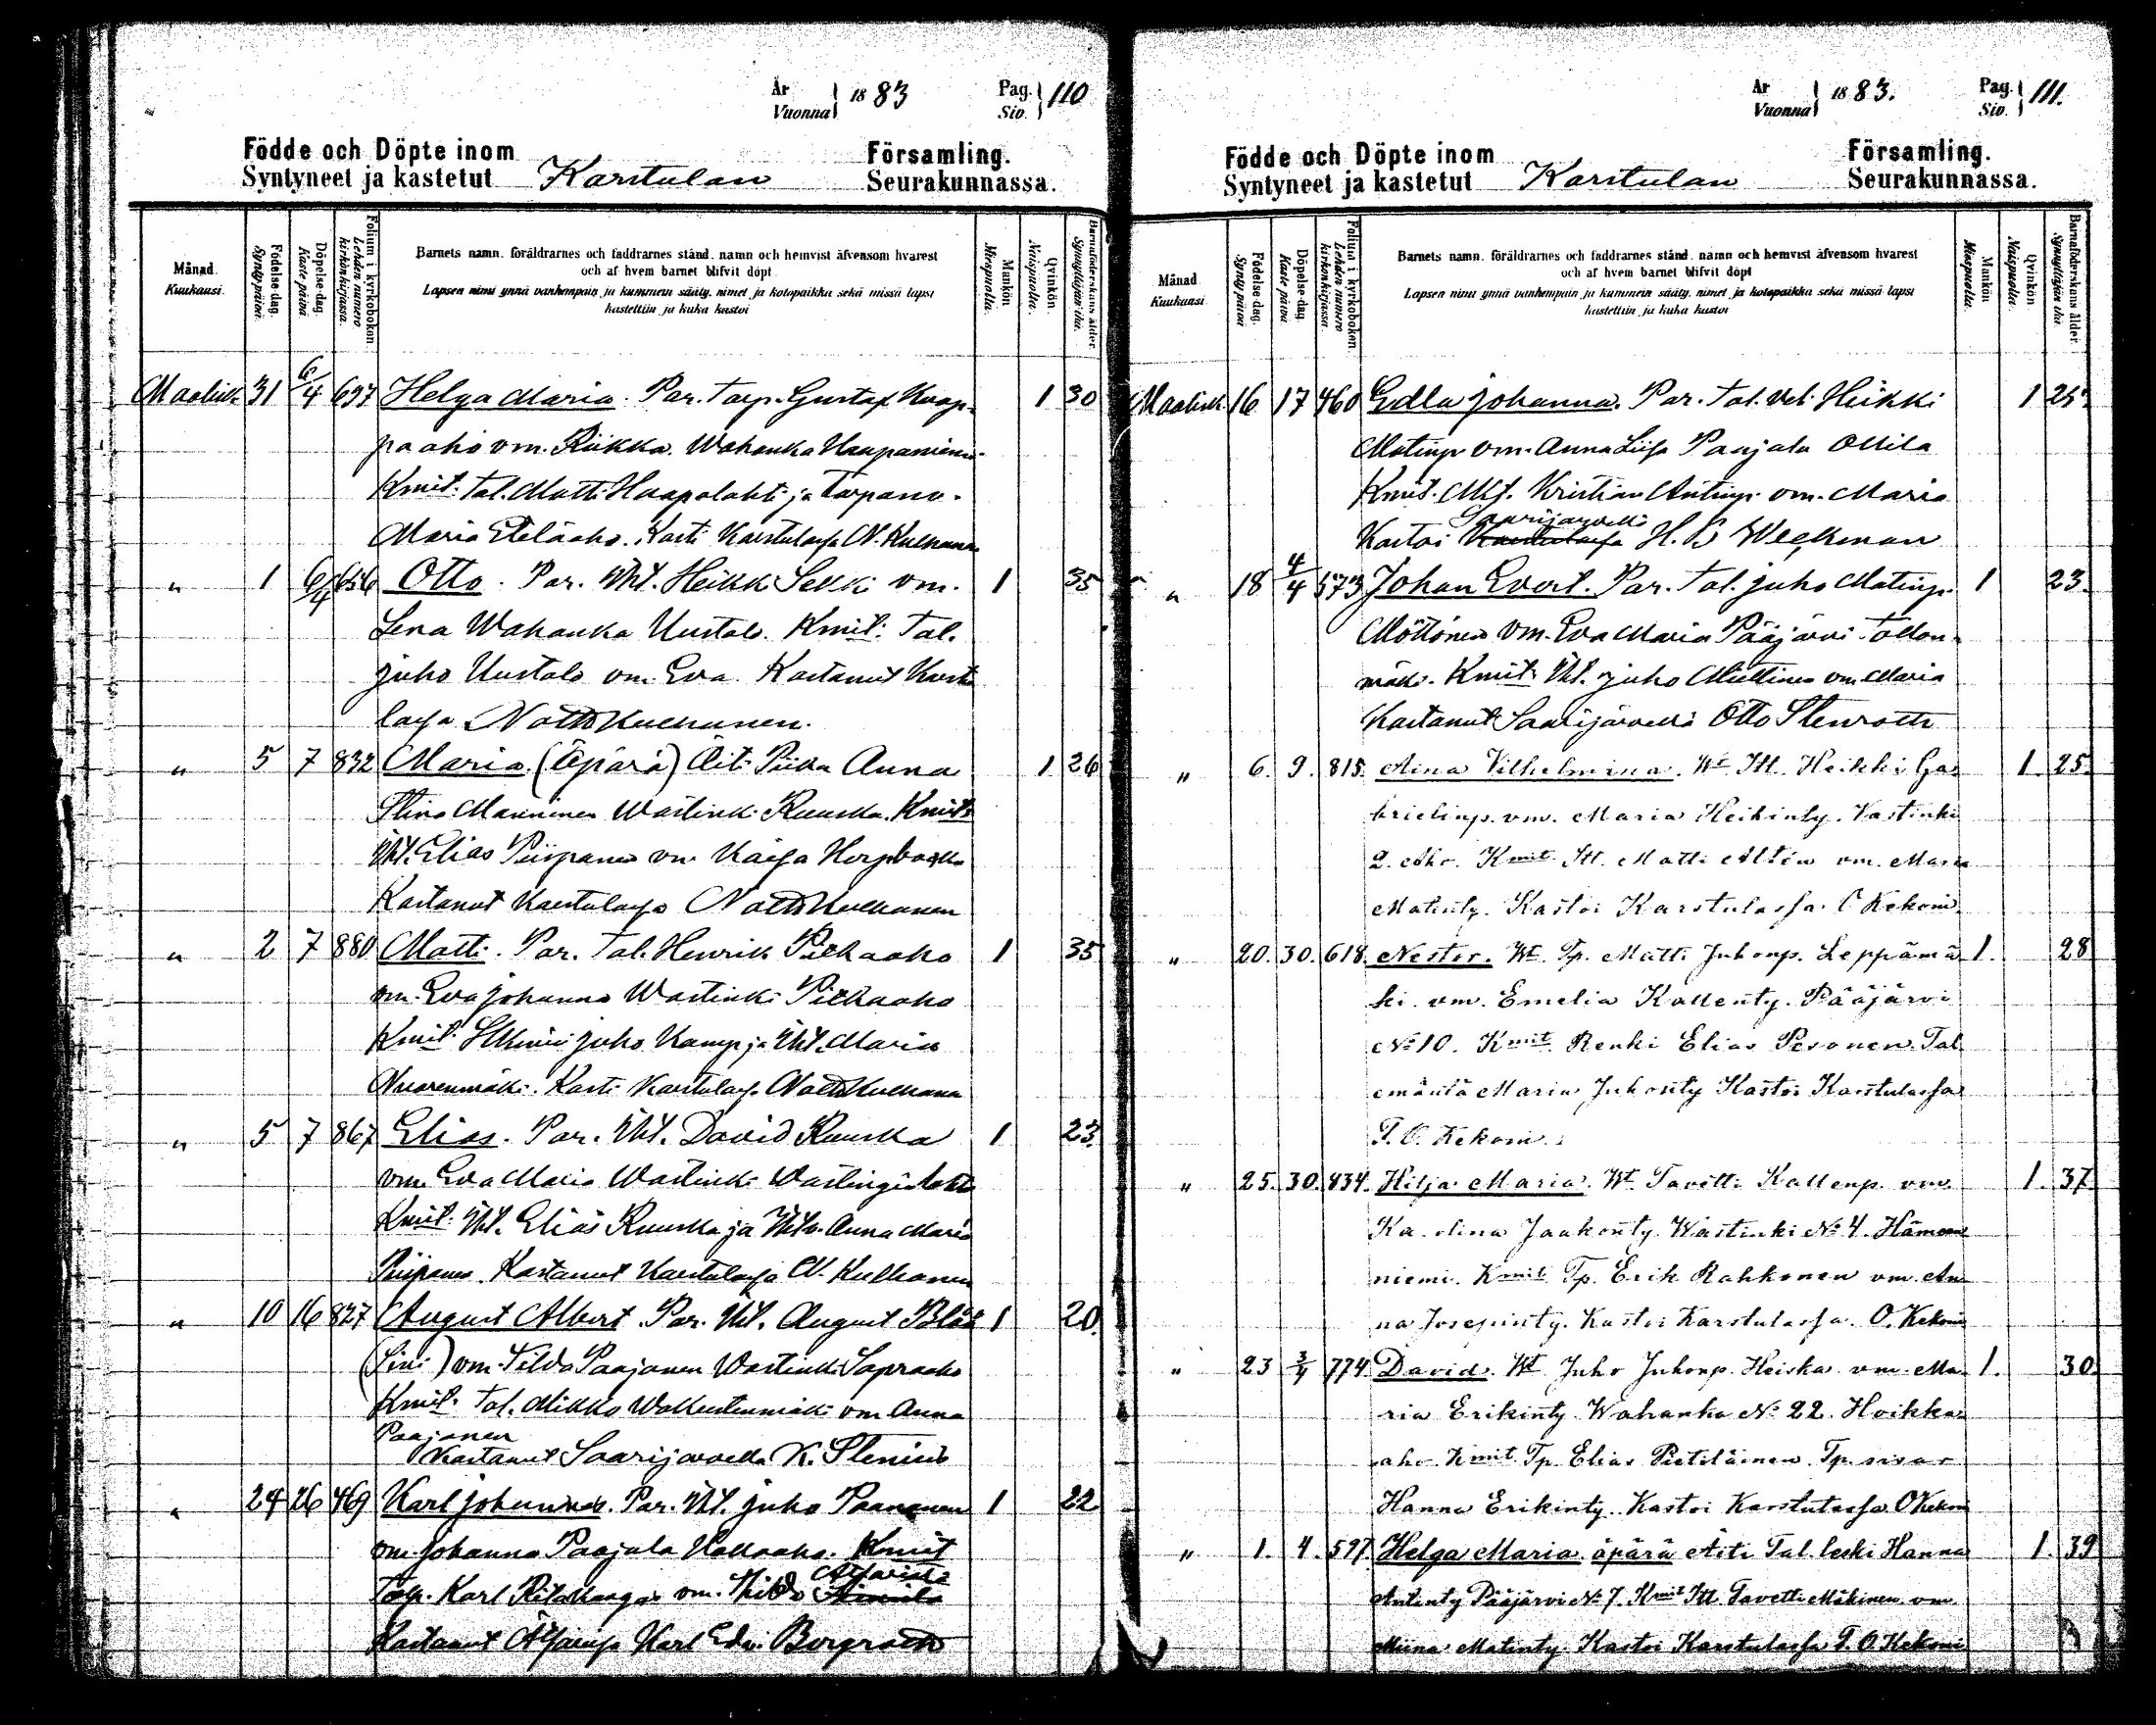 År
Vuonna } 18 83
Pag.
Siv. } 110
Födde och Döpte inom
Syntyneet ja kastetut Karstulan Församling.
Seurakunnassa.
Månad.
Kuukausi.
Födelse-dag.
Syntypäivä.
Döpelse-dag.
Kaste päivä.
Folium i kyrkoboken
Lehden numero
kirkonkirjassa.
Barnets namn. föräldrarnes och faddrarnes stånd. namn och hemvist äfvensom hvarest
och af hvem barnet blifvit döpt
Lapsen nimi ynnä vanhempain ja kummein sääty. nimet ja kotopaikka sekä missä lapsi
kastettiin ja kuka kastoi
Mankön.
Miespuolia.
Qvinkön.
Naispuolia.
Barnaföderskans ålder.
Synnyttäjän ikä.
Maalisk. 31 6/4 697 Helga Maria. Par. Torp. Gustaf Haap- 1 30
paaho vm. Riikka Wahanka Haapaniemi
Kmit. Tal. Matti Haapalahti ja Torpanv.
Maria Eteläaho. Kasti Karstulassa N. Kulhanen
" 1 6/4 656 Otto. Par. Itll. Heikki Selki vm. 1 35
Lena Wahanka Uustalo. Kmit: Tal.
juho Uustalo vm. Eva. Kastanut Karstu
lassa Natt Kulhanen.
" 5 7 832 Maria. (Äpärä) Äiti Piika Anna 1 26
Stina Manninen Wastinki Ruuska. Kmit:
Itll. Elias Piispanen vm Kaisa
Kastanut Karstulassa Natt Kulhanen
" 2 7 880 Matti. Par. Tal. Henrik Pitkaaho 1 35
vm. Eva johanna Wastinki Pitkaaho
Kmit. juho Kamp ja Itll. Maria
Nuorenmäki. Kasti Karstulassa Natt Kulhanen
" 5 7 867 Elias. Par. Itll. David Ruuska 1 23
vm. Eva Maria Wastinki Wastinginlahti
Kmit: Itll. Elias Ruuska ja Itllv. Anna Maria
Piispanen. Kastanut Karstulassa N. Kulhanen
" 10 16 827 August Albert. Par. Itll. August Blåå 1 20.
(Sini) vm. Tilda Paajanen Wastinki Sopraaho
Kmit. Tal. Mikko Walkeutenmäki vm Anna
Paajanen
Kastanut Saarijärvellä K. Stenius
" 24 26 469 Karl johannes. Par. Itll. juho Paananen 1 22
vm. johanna Paajala Kallaaho. Kmit
Torp. Karl Ritakangas vm. Hilda
Kastanut Karl Edv. Borgroth
År
Vuonna } 18 83.
Pag.
Siv. } 111.
Födde och Döpte inom
Syntyneet ja kastetut Karstulan Församling.
Seurakunnassa.
Månad
Kuukausi
Födelse-dag.
Synty päivä
Döpelse-dag.
Kaste päivä
Folium i kyrkoboken
Lehden numero
kirkonkirjassa.
Barnets namn. föräldrarnes och faddrarnes stånd. namn och hemvist äfvensom hvarest
och af hvem barnet blifvit döpt
Lapsen nimi ynnä vanhempain ja kummein sääty. nimet ja kotopaikka sekä missä lapsi
kastettiin ja kuka kastoi
Mankön
Miespuolia.
Qvinkön
Naispuolia.
Barnaföderskans ålder.
Synnyttäjän ikä
Maalisk. 16 17 460 Edla johanna. Par. Tal. vel. Heikki 1 25
Matinp. vm. Anna Liisa Paajala Ollila
Kmit. Kristian Antinp. vm. Maria
Saarijärvellä
Kastoi Karstulassa H. B Weckman
" 18 4/4 573 Johan Evert. Par. Tal. juho Matinp. 1 23.
Möttönen vm. Eva Maria Pääjärvi
mäki. Kmit. Itll. juho Miettinen vm. Maria
Kastanut Saarijärvellä Otto Stenroth
" 6. 9. 815. Aina Vilhelmina. Wt. Itl. Heikki Ga- 1. 25.
brielinp. vm. Maria Heikinty. Vastinki
2. Aho. Kmit. Itl. Matti Altén vm. Maria
Matinty. Kastoi Karstulassa O Kekoni.
" 20. 30. 618. Nestor. Wt. Tp. Matti Juhonp. Leppämä 1. 28
ki. vm. Emelia Kallenty. Pääjärvi
No 10. Kmit. Renki Elias Pesonen Tal.
emäntä Maria Juhonty Kastoi Karstulassa
T. O. Kekoni.
" 25. 30. 834. Hilja Maria. Wt. Tavitti Kallenp. vm. 1. 37.
Ka olina Jaakonty. Wastinki No 4. Hämeen
niemi. Kmit. Tp. Erik Rahkonen vm. An
na Josepinty. Kastoi Karstulassa. O. Kekoni
" 23 3/4 774. David. Wt. Juho Juhonp. Heiska vm. Ma- 1. 30.
ria Erikinty. Wahanka No 22. Hoikka
aho. Kmit. Tp. Elias Pietiläinen. Tp. sisar
Hanna Erikinty. Kastoi Karstulassa O Kekoni
" 1. 4. 597. Helga Maria. äpärä Äiti Tal. leski Hanna 1. 39
Antinty Pääjärvi No 7. Kmit. Itl. Tavetti Mäkinen vm.
Miina Matinty. Kastoi Karstulassa T. O. Kekoni